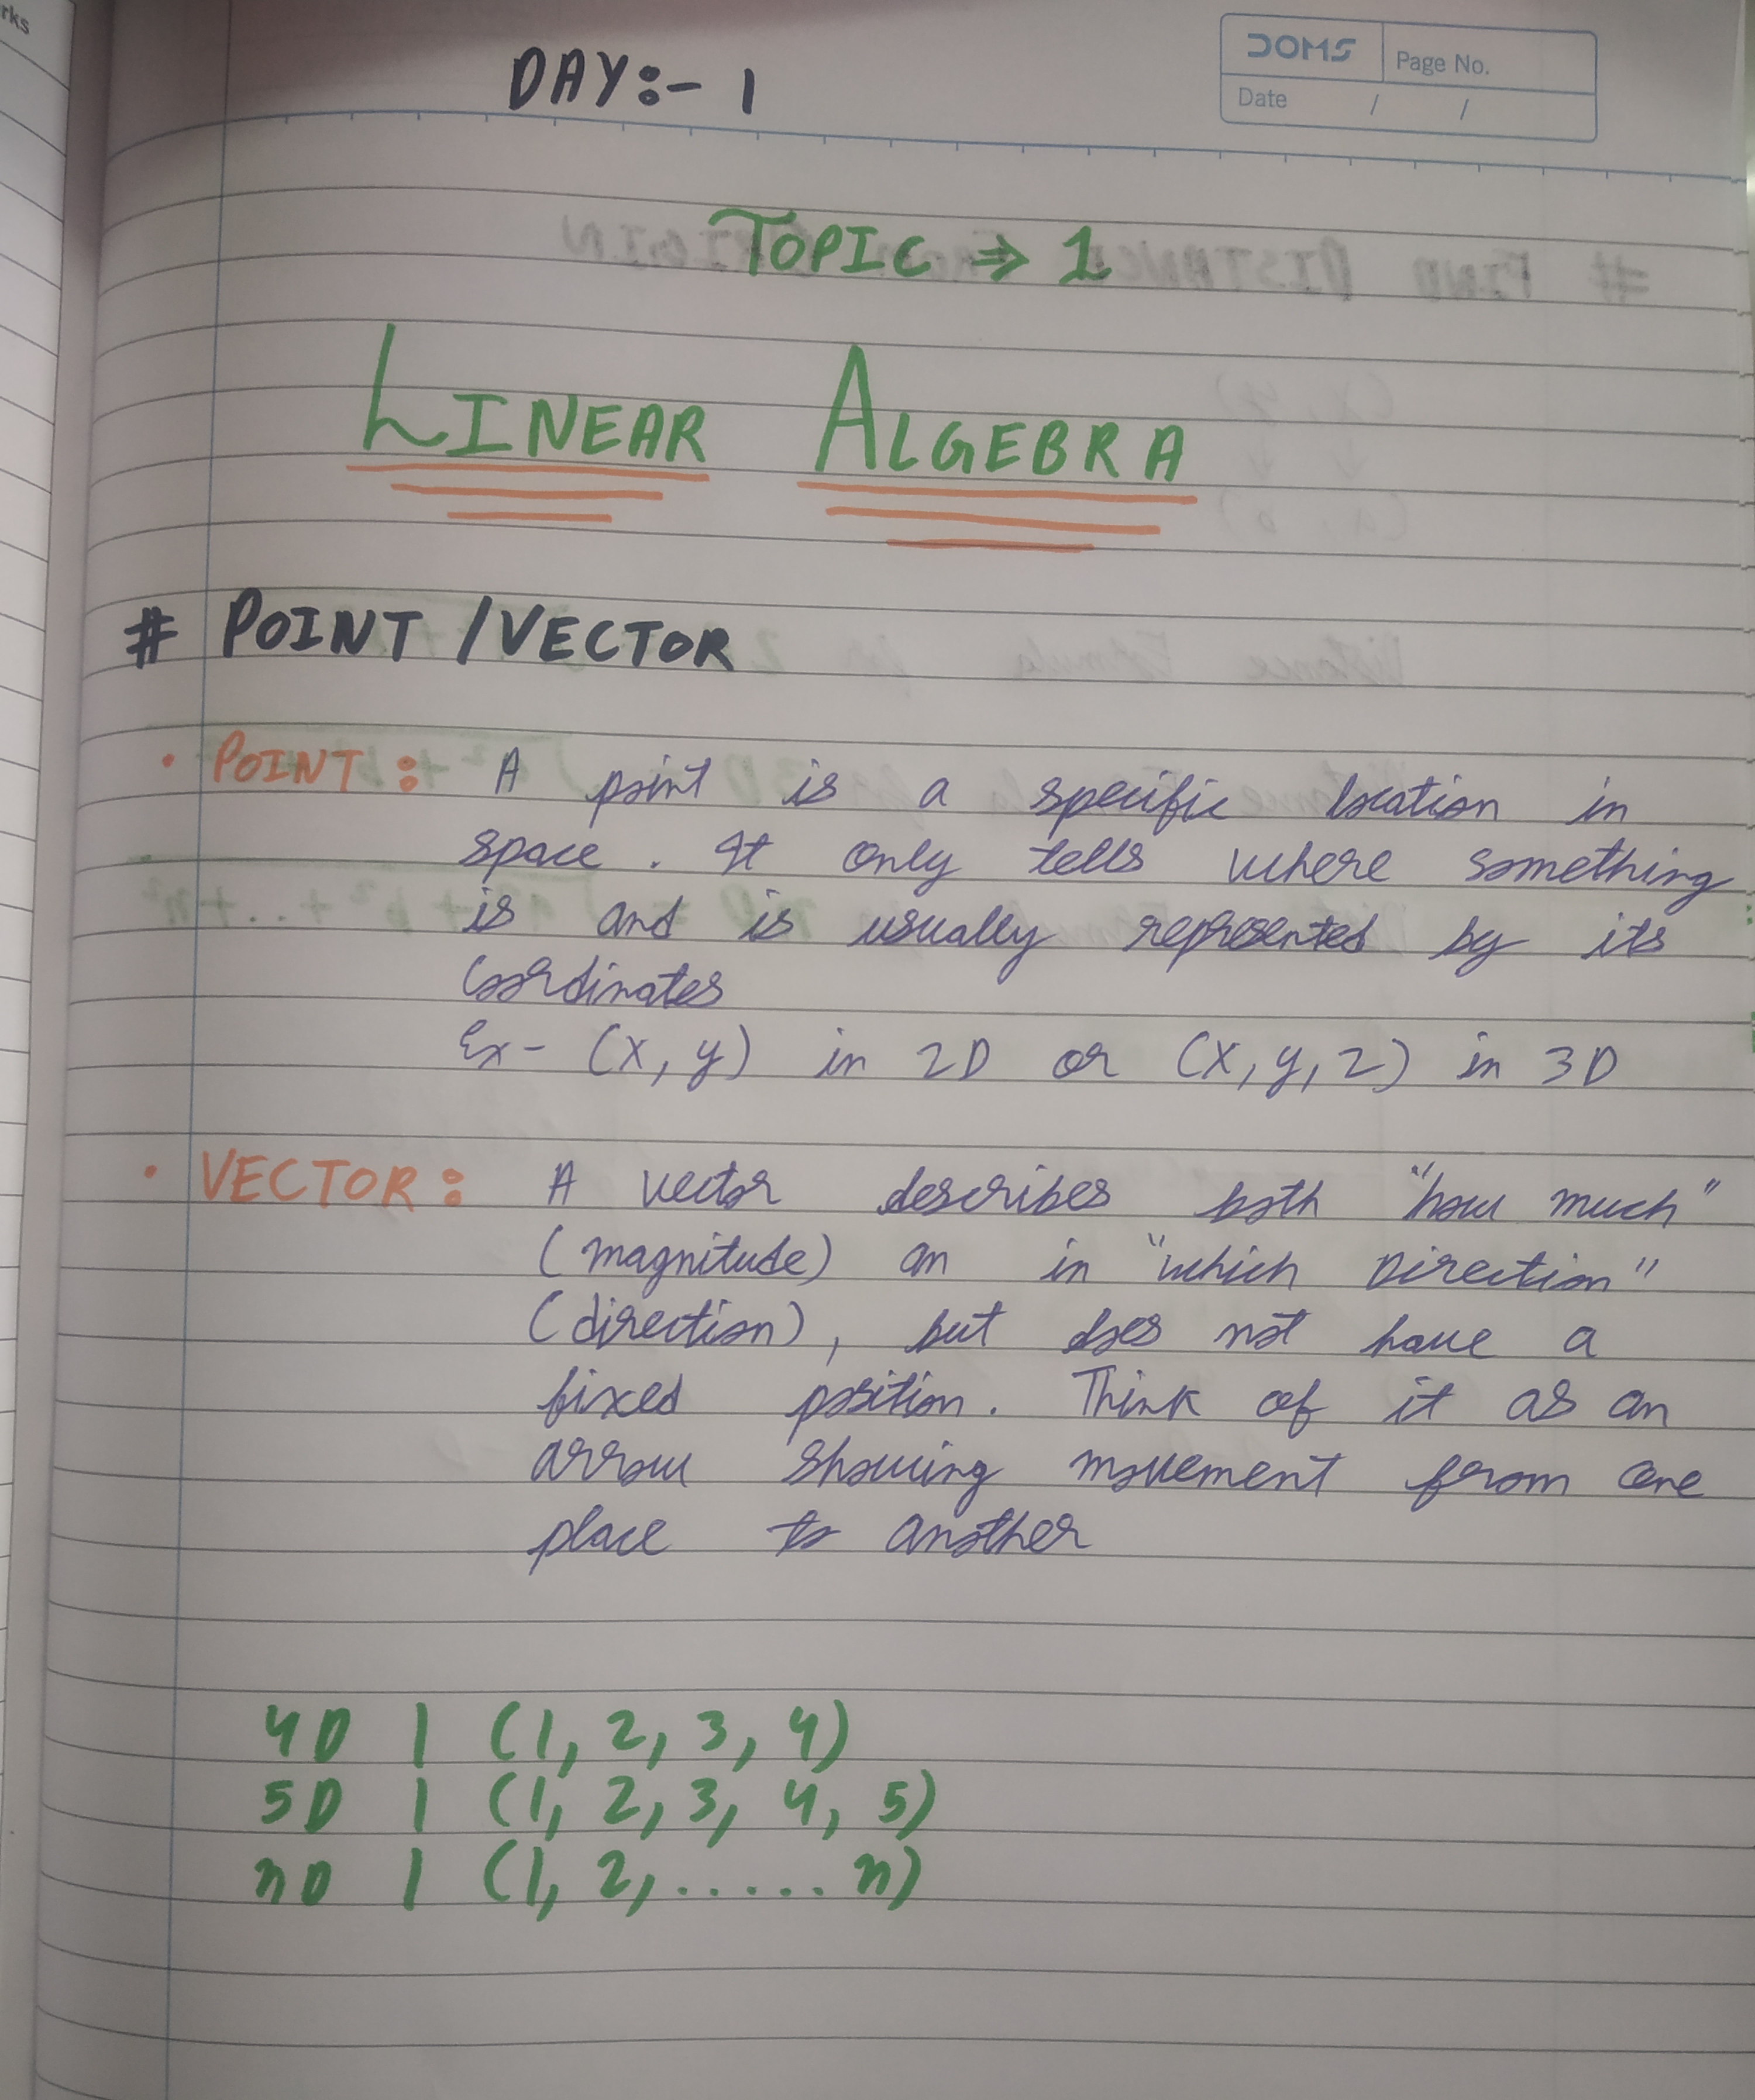 rks
DAY:- 1
DOMS
Page No.
Date / /
TOPIC ⇒ 1
LINEAR ALGEBRA
# POINT / VECTOR
• POINT: A point is a specific location in
space. It only tells where something
is and is usually represented by its
Coordinates
Ex- (x, y) in 2D or (x, y, z) in 3D
• VECTOR: A vector describes both "how much"
(magnitude) an in "which Direction"
(direction), but does not have a
fixed position. Think of it as an
arrow showing movement from one
place to another
4D | (1, 2, 3, 4)
5D | (1, 2, 3, 4, 5)
nD | (1, 2, ..... n)